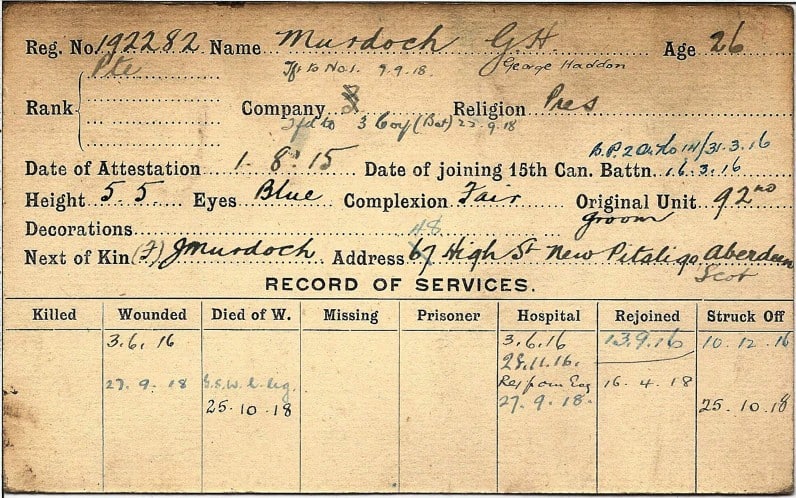 Reg. No. 192282 Name Murdoch G H. Age 26
Pte Tfd to No 1. 9.9.18. George Haddon
Rank Company 2 Religion Pres
Tfd to 3 Coy (Bat) 27.9.18
B.P.2 14/31.3.16
Date of Attestation 1.8.15 Date of joining 15th Can. Battn. 16.3.16
Height 5.5 Eyes Blue Complexion Fair Original Unit 92nd
Decorations groom
48
Next of Kin (F) J Murdoch Address 67 High St New Pitsligo Aberdeen
Scot
RECORD OF SERVICES.
Killed Wounded Died of W. Missing Prisoner Hospital Rejoined Struck Off
3.6.16 3.6.16 13.9.16 10.12.16
28.11.16.
27.9.18 G.S.W. L. leg. 16.4.18
25.10.18 27.9.18. 25.10.18